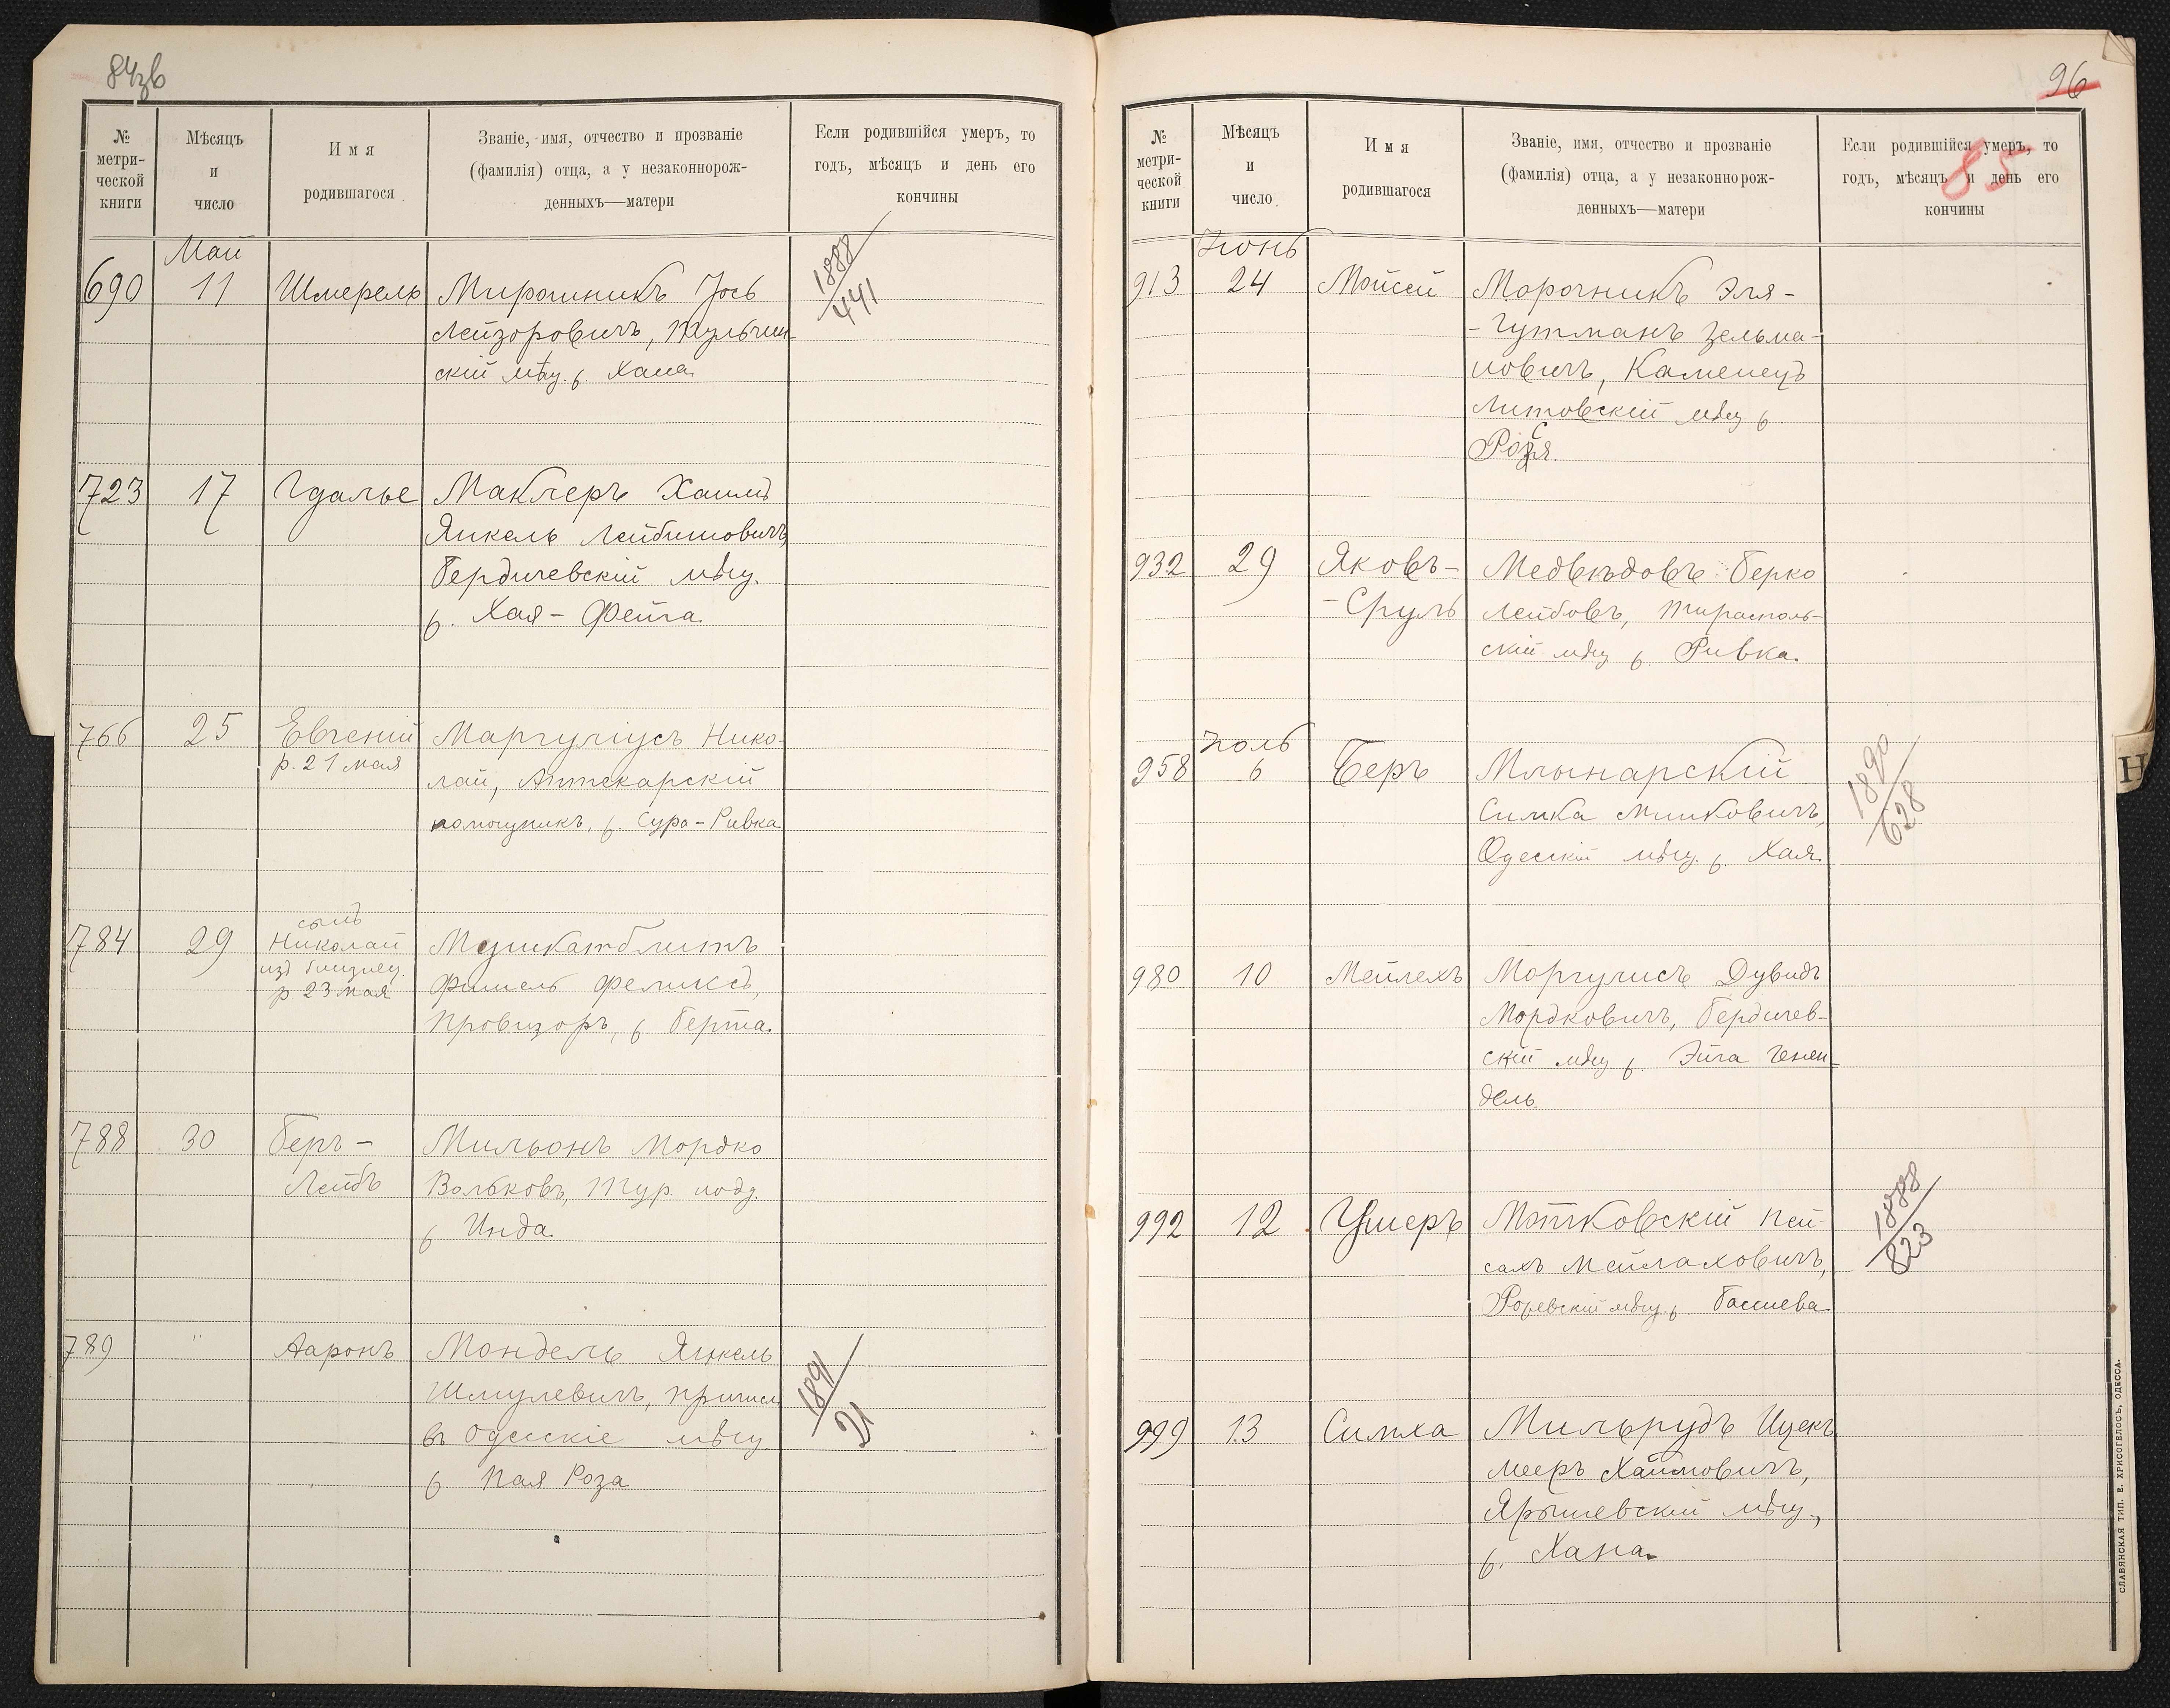 84зв
№ метрической книги
Мѣсяцъ и число
Имя родившагося
Званіе, имя, отчество и прозваніе (фамилія) отца, а у незаконнорож-денныхъ—матери
Если родившійся умеръ, то годъ, мѣсяцъ и день его кончины
Май
690 11 Шмерель Мирошникъ Іось 1888/441
Лейзоровичъ, Тульчин-
скій мѣщ. ж. Хана.
723 17 Гдалье Маклеръ Хаимъ
Янкель Лейбишовичъ
Бердичевскій мѣщ.
ж. Хая-Фейга.
766 25 Евгеній Маргуліусъ Нико-
р. 21 мая лай, Аптекарскій
помощникъ, ж. Сура-Ривка.
сынъ
784 29 Николай Мушкатблитъ
изъ близнец.
р 23 мая Фишель Феликсъ,
Провизоръ, ж Берта.
788 30 Беръ- Мильонъ Мордко
Лейбъ Вольковъ, Тур. подд.
ж Инда.
789 " Ааронъ Мондель Янкель 1891/21
Шмулевичъ, причисл.
въ Одесскіе мѣщ
ж. Пая Роза
96
85
№ метри-ческой книги
Мѣсяцъ и число
Имя родившагося
Званіе, имя, отчество и прозваніе (фамилія) отца, а у незаконнорож-денныхъ—матери
Если родившійся умеръ, то годъ, мѣсяцъ и день его кончины
Іюнь
913 24 Мойсей Марочникъ Эля-
-Гутманъ Зельма-
новичъ, Каменецъ
Литовскій мѣщ ж.
932 29 Яковъ- Медвѣдовъ Берко
-Сруль Лейбовъ, Тирасполь-
скій мѣщ ж. Ривка.
Іюль
958 6 Беръ Млынарскій 1890/628
Симха Мишковичъ,
Одесскій мѣщ. ж. Хая.
980 10 Мейлехъ Моргулисъ Дувидъ
Мордковичъ, Бердичев-
скій мѣщ ж. Эйга Генен-
дель
992 12 Ушеръ Мотковскій Пей- 1888/823
сахъ Мейлаховичъ,
мѣщ. ж Басшева
999 13 Симха Мильрудъ Ицекъ
Мееръ Хаимовичъ,
Ярышевскій мѣщ.,
ж. Хана.
Н
СЛАВЯНСКАЯ ТИП. Е. ХРИСОГЕЛОСЪ, ОДЕССА.